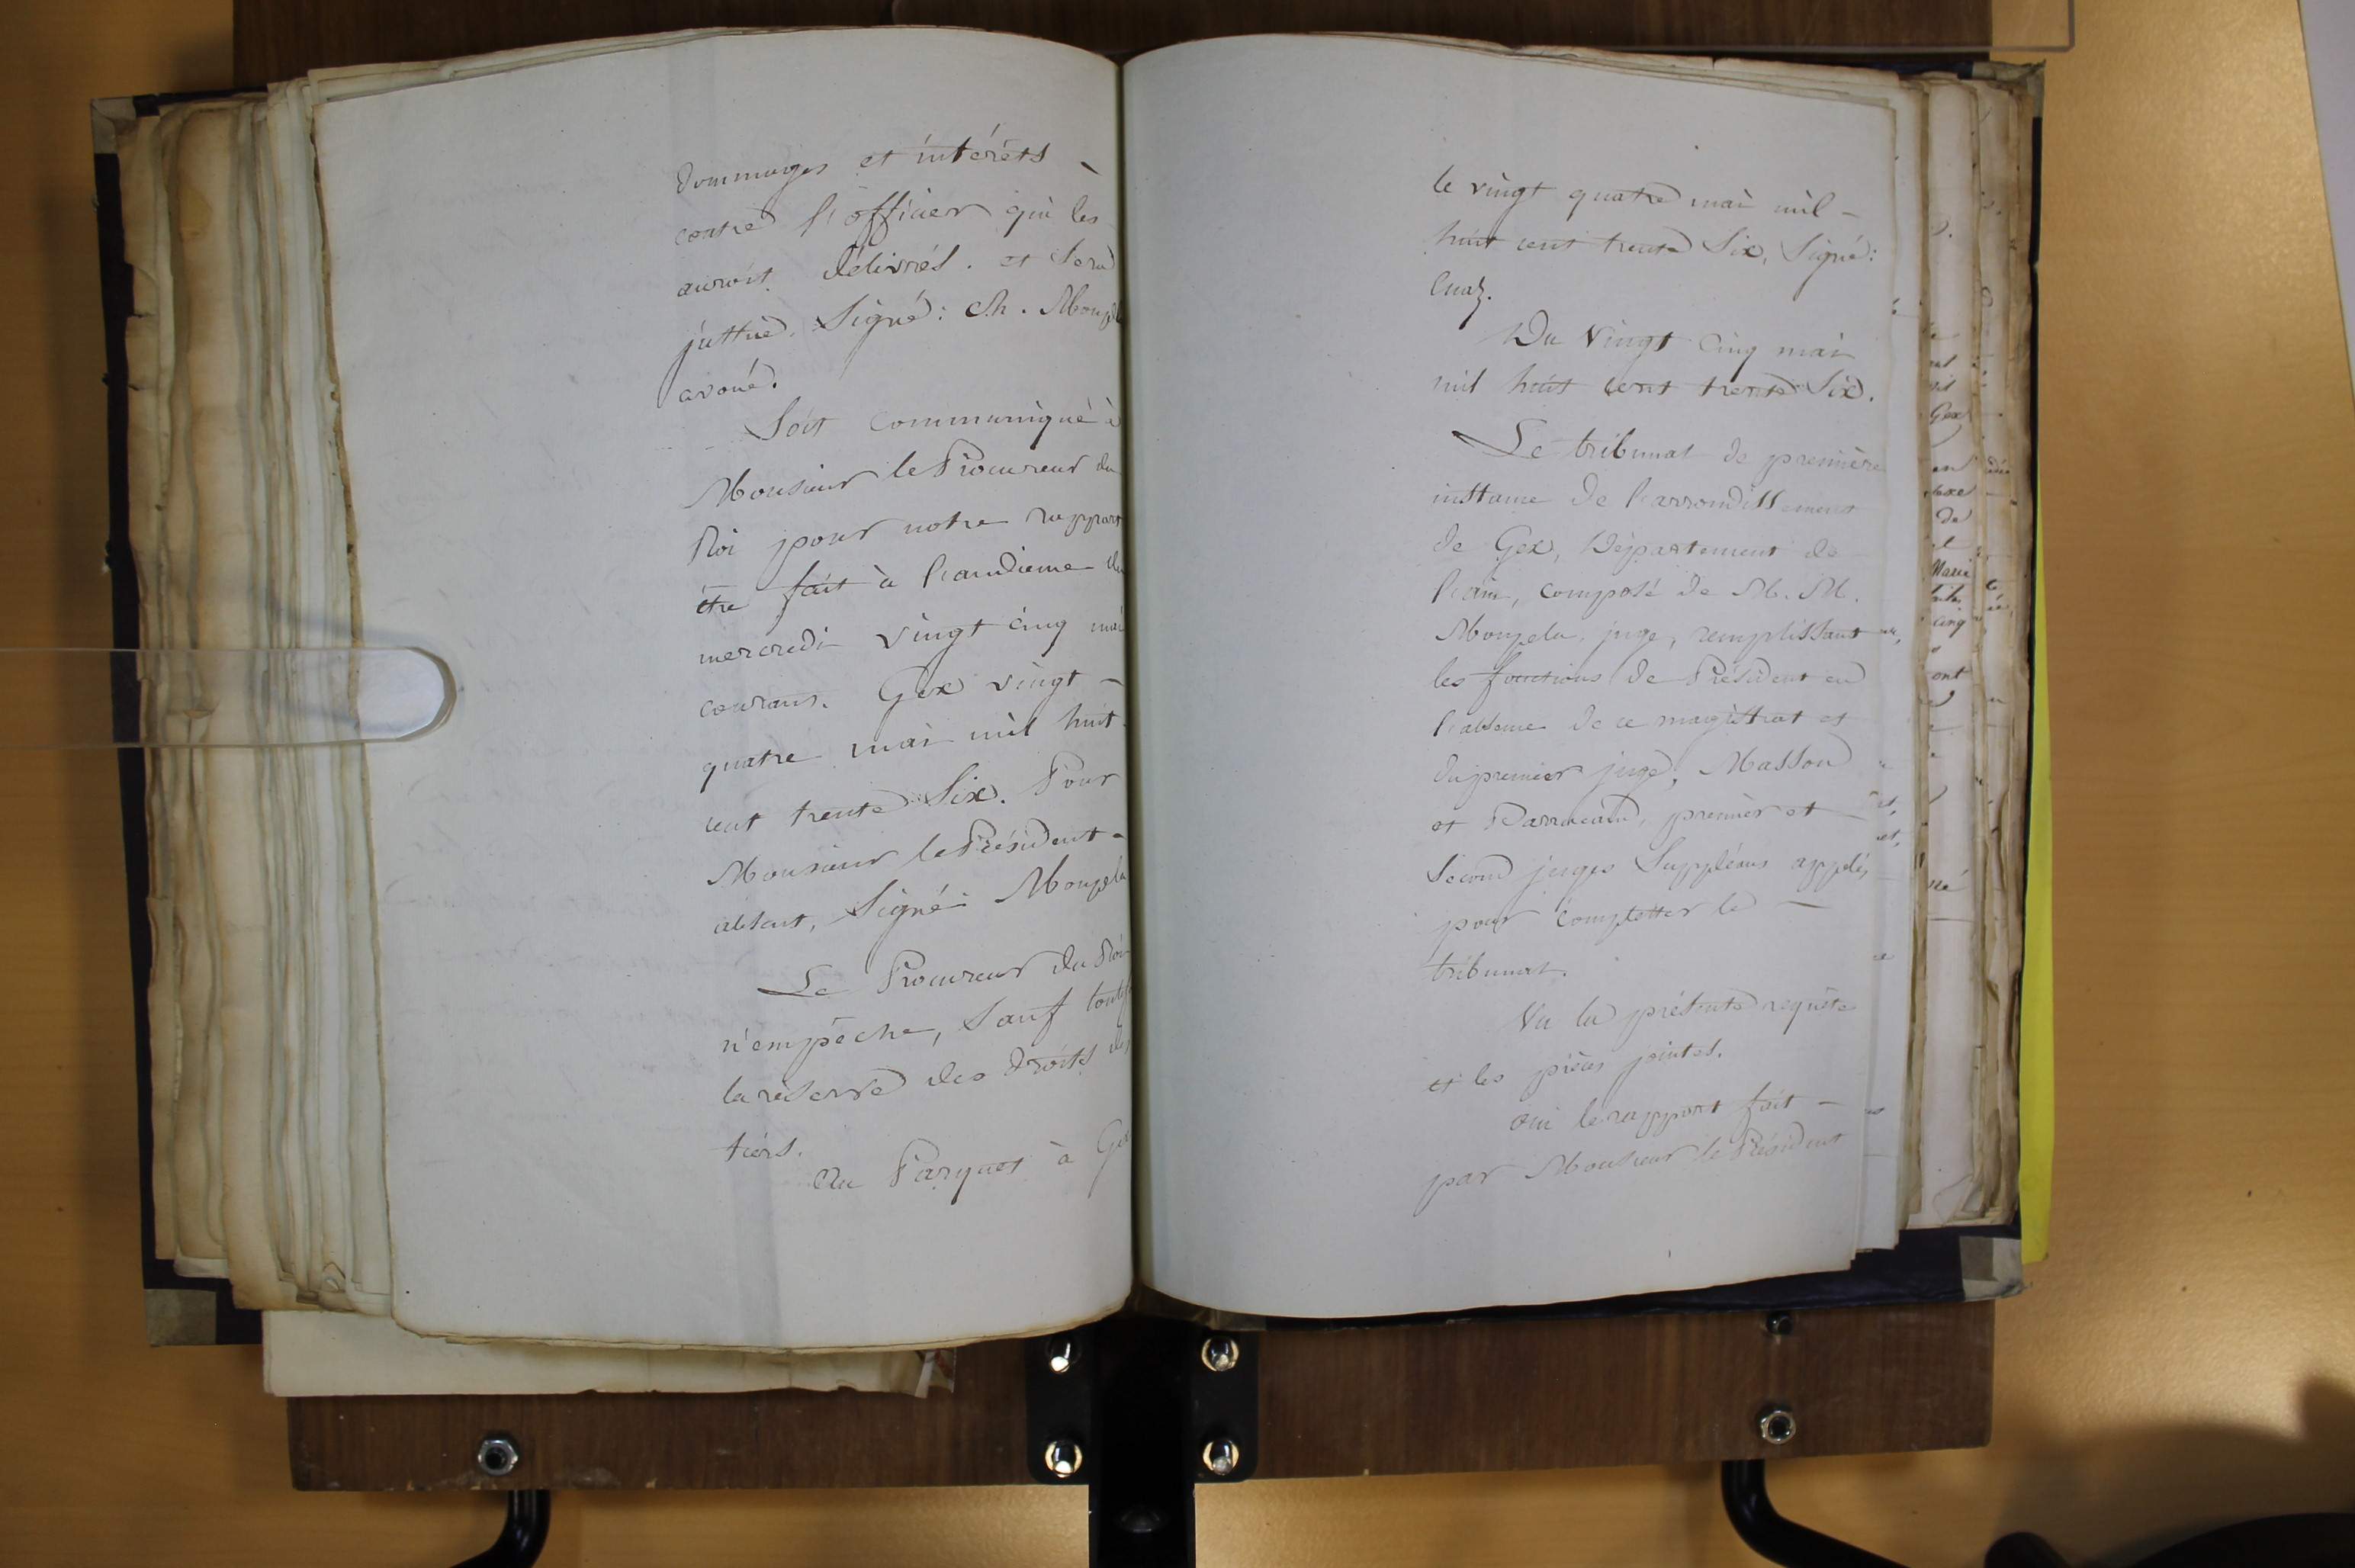 dommages et intérêts -
contre l'officier qui les
auroit délivrés. et sera
justice. Signé: Ch. Monpela
avoué.
Soit communiqué à
Monsieur le Procureur du
Roi pour notre rapport
être fait à l'audience du
mercredi vingt cinq mai
courant. Gex vingt -
quatre mai mil huit -
cent trente Six. Pour
Monsieur le Président -
absent, Signé: Monpela
Le Procureur du Roi
n'empêche, Sauf toutef
la réserve des droits des
tiers.
Au Parquet à Gex
le vingt quatre mai mil -
huit cent trente Six, Signé:
Cuaz.
Du Vingt Cinq mai
mil huit cent trente Six.
Le tribunal de première
instance de l'arrondissement
de Gex, Département de
l'ain, composé de M. M.
Monpela, juge, remplissant
les fonctions de Président en
l'absence de ce magistrat et
du premier juge, Masson
et premier et -
Second juges Suppléans appelés
pour completter le -
tribunal.
Vu la présente requête
et les pièces jointes.
Oui le rapport fait -
par Monsieur le Président
Gex
de
Marie
cinq
ont